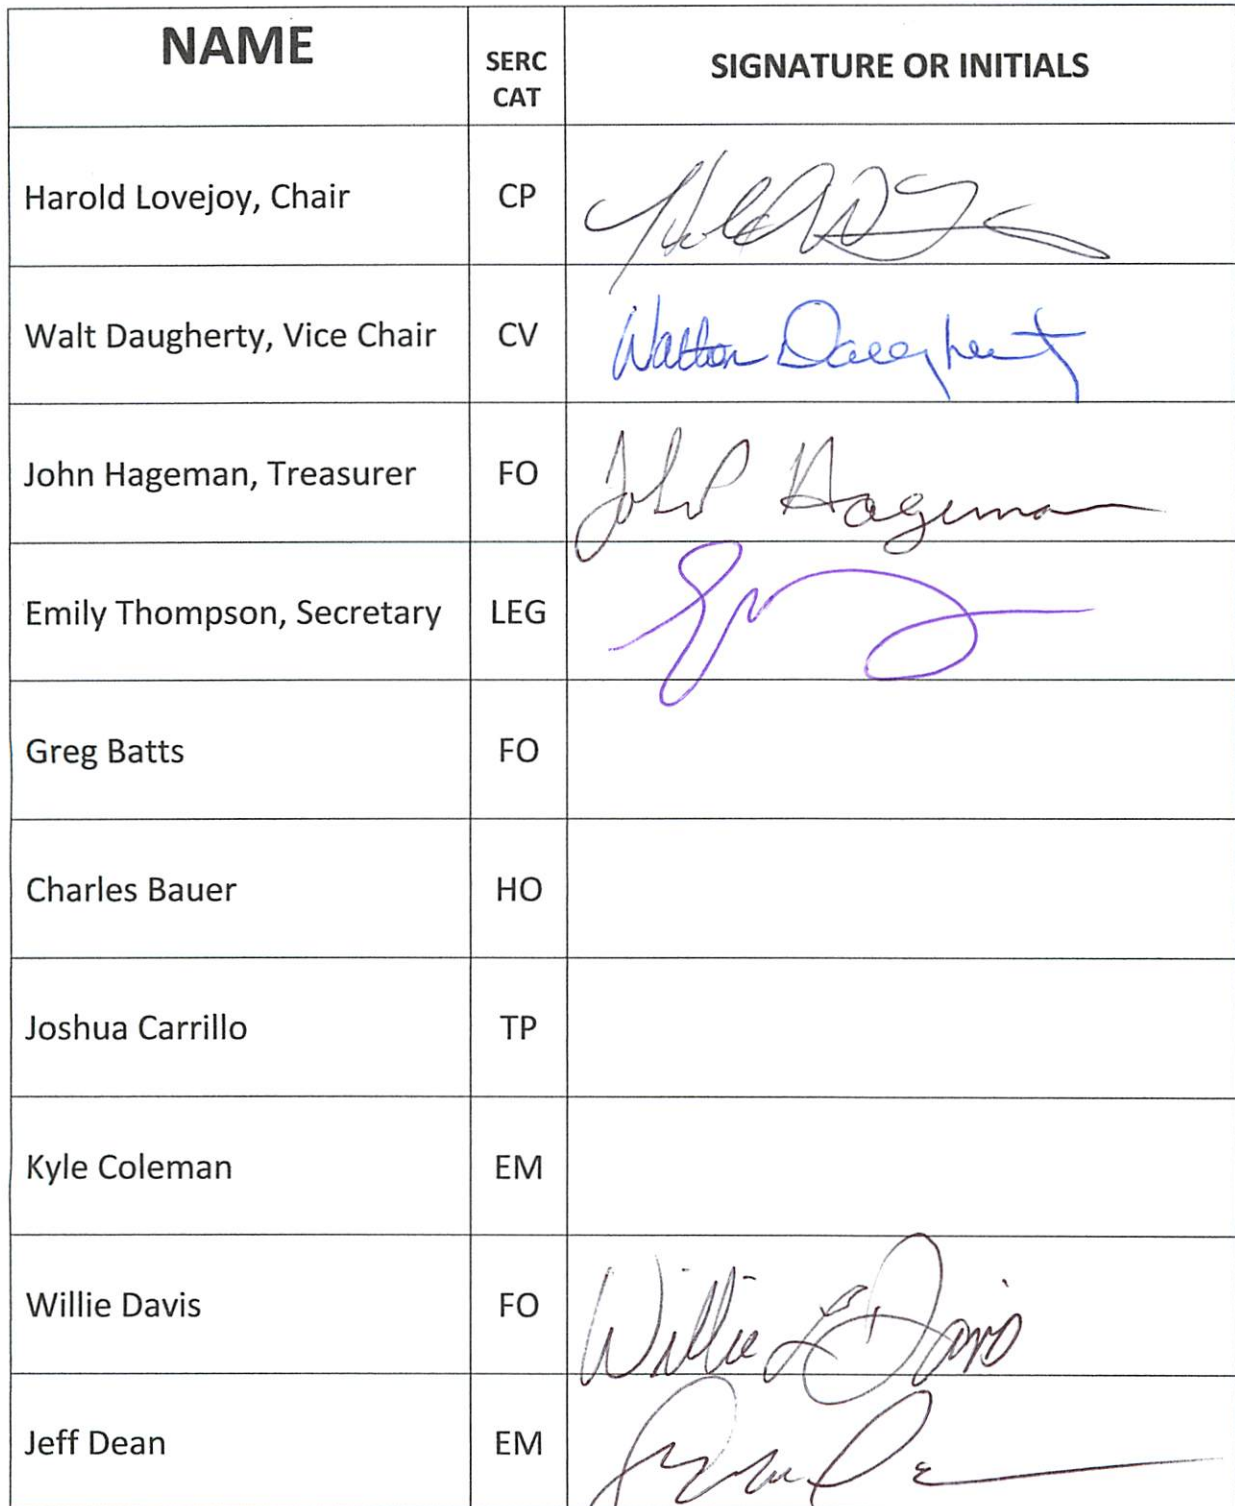 NAME SERC CAT SIGNATURE OR INITIALS
Harold Lovejoy, Chair CP
Walt Daugherty, Vice Chair CV Walton Daugherty
John Hageman, Treasurer FO John P Hageman
Emily Thompson, Secretary LEG
Greg Batts FO
Charles Bauer HO
Joshua Carrillo TP
Kyle Coleman EM
Willie Davis FO Willie E Davis
Jeff Dean EM